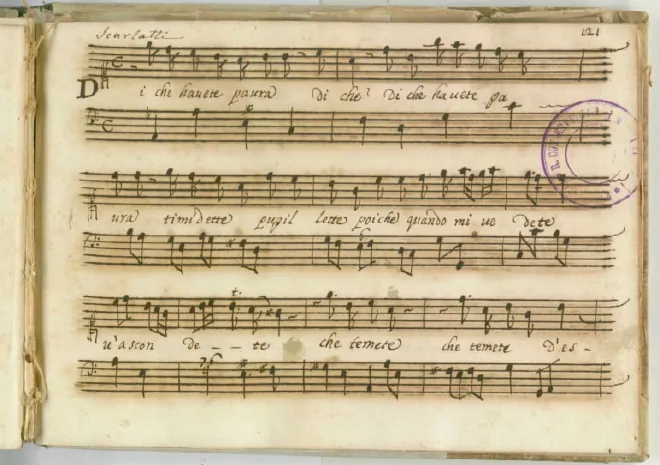 Scarlatti
121
Di che havete paura di che? Di che havete pa
ura timidette pupillette poiche quando mi ve dete
v'ascon de - - te che temete che temete d'es -